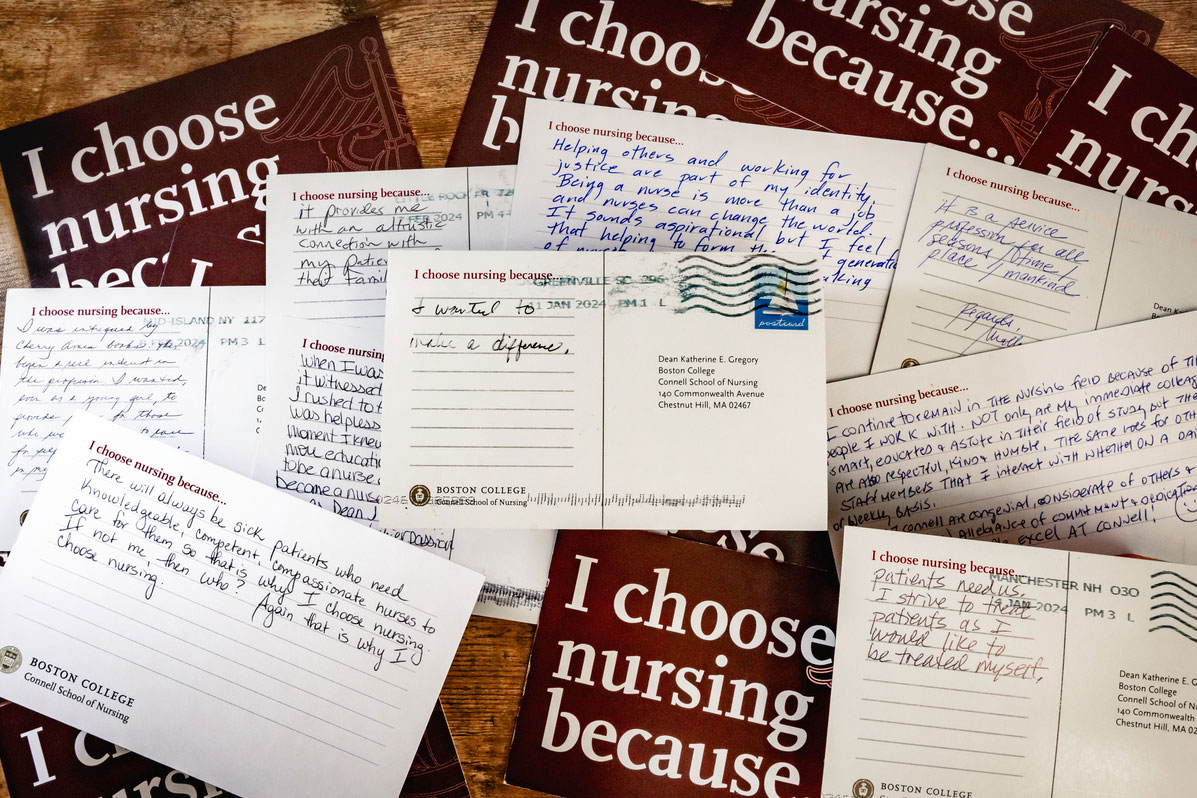 I choose
nursing
bec
I choose
nursing
b
I choose
nursing
because...
I
nursing
I choose nursing because...
it provides me
with an altruistic
connection with
my
their
LITTLE ROCK AR 720
FEB 2024 PM 4
I choose nursing because...
Helping others and working for
justice are part of my identity.
Being a nurse is more than a job
and nurses can change the world.
It sounds aspirational but I feel
that helping to form
of
generation
making
I choose nursing because...
it is a service
profession for all
seasons / time /
place / mankind.
Regards,
Dean
I choose nursing because...
I was intrigued by
Cherry Ames books
began a
the profession. I wanted,
even as a young girl, to
provide for those
who
MID-ISLAND NY 117
2024 PM 3 L
I choose nursing
When I was
it witnessed
I rushed to
was helpless
moment I knew
more educati
to be a nurse.
became a nurse
Dean J
I choose nursing because...
I wanted to
make a difference.
GREENVILLE SC 296
11 JAN 2024 PM 1 L
postcard
Dean Katherine E. Gregory
Boston College
Connell School of Nursing
140 Commonwealth Avenue
Chestnut Hill, MA 02467
BOSTON COLLEGE
Connell School of Nursing
I choose nursing because...
I continue to remain in the nursing field because of the
people I work with. Not only are my immediate colleag
smart, educated & astute in their field of study but the
are also respectful, kind & humble. The same goes for oth
staff members that I interact with whether on a da
or weekly basis.
Connell are congenial, considerate of others &
allegiance of commitment & dedication
excel at Connell.
I choose nursing because...
There will always be sick patients who need
knowledgeable, competent, compassionate nurses to
care for them, so that is why I choose nursing.
If not me, then who? Again that is why I
choose nursing.
BOSTON COLLEGE
Connell School of Nursing
I choose
nursing
because...
I choose nursing because...
patients need us.
I strive to treat
patients as I
would like to
be treated myself.
MANCHESTER NH 030
JAN 2024 PM 3 L
Dean Katherine E. G
Boston College
Connell School of N
140 Commonwealth
Chestnut Hill, MA 02
BOSTON COLLEGE
I